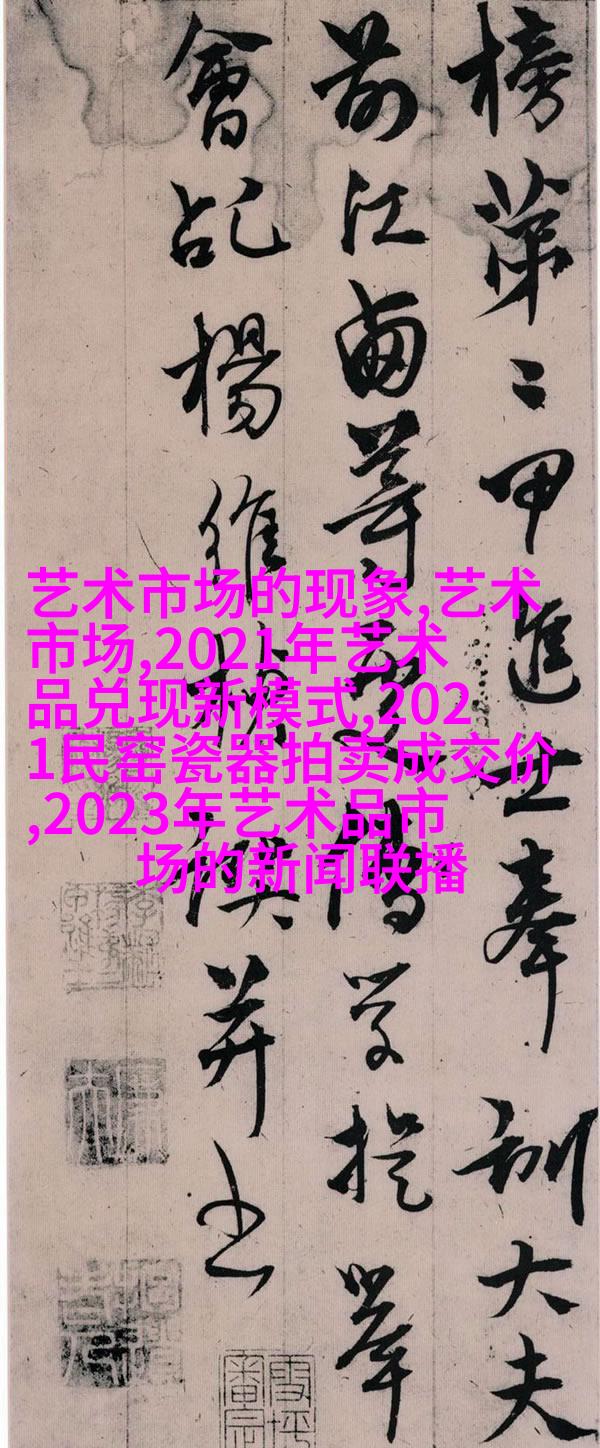 榜第二甲進士奉訓大夫
前江西等處儒學提舉
會乩楊維楨譔并書
艺术市场的现象,艺术
市场,2021年艺术
品兑现新模式,202
1民窑瓷器拍卖成交价
,2023年艺术品市
场的新闻联播